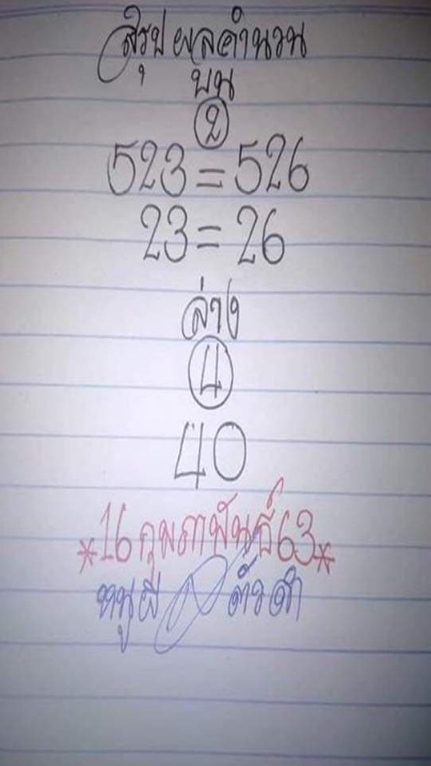 สรุปผลคำนวน
บน
2
523=526
23=26
ล่าง
4
40
*16กุมภาพันธ์63*
หนูผี ตัวดำ